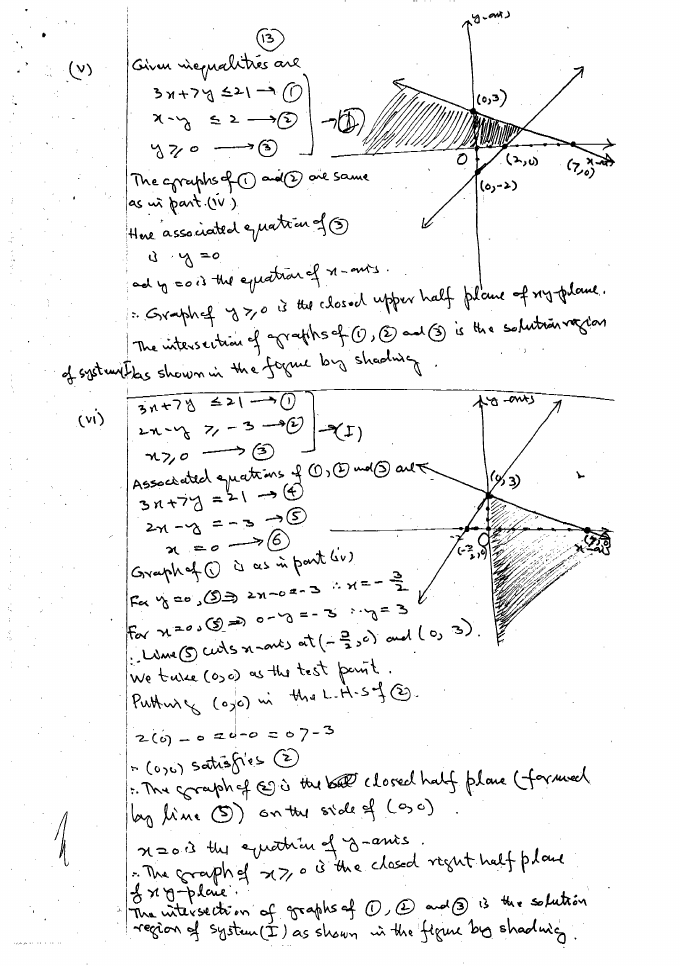 (13)
(v) Given inequalities are
3x+7y ≤ 21 → ①
x-y ≤ 2 → ②
y ≥ 0 → ③
→ (I)
The graphs of ① and ② are same
as in part (iv)
Here associated equation of ③
is y = 0
and y = 0 is the equation of x-axis.
∴ Graph of y ≥ 0 is the closed upper half plane of xy-plane.
The intersection of graphs of ①, ② and ③ is the solution region
of system(I) as shown in the figure by shading.
y-axis
(0,3)
O
(2,0)
(7,0)
x-axis
(0,-2)
(vi) 3x+7y ≤ 21 → ①
2x-y ≥ -3 → ②
x ≥ 0 → ③
→ (I)
Associated equations of ①, ② and ③ are
3x+7y = 21 → ④
2x-y = -3 → ⑤
x = 0 → ⑥
Graph of ① is as in part (iv)
For y=0, ⑤ ⇒ 2x-0=-3 ∴ x=-3/2
For x=0, ⑤ ⇒ 0-y=-3 ∴ y=3
∴ Line ⑤ cuts x-axis at (-3/2,0) and (0, 3).
We take (0,0) as the test point.
Putting (0,0) in the L.H.S of ②.
2(0) - 0 = 0-0 = 0 > -3
∴ (0,0) satisfies ②
∴ The graph of ② is the closed half plane (formed
by line ⑤) on the side of (0,0).
x=0 is the equation of y-axis.
∴ The graph of x ≥ 0 is the closed right half plane
of xy-plane.
The intersection of graphs of ①, ② and ③ is the solution
region of system (I) as shown in the figure by shading.
y-axis
(0,3)
-2
(-3/2,0)
O
(7,0)
x-axis